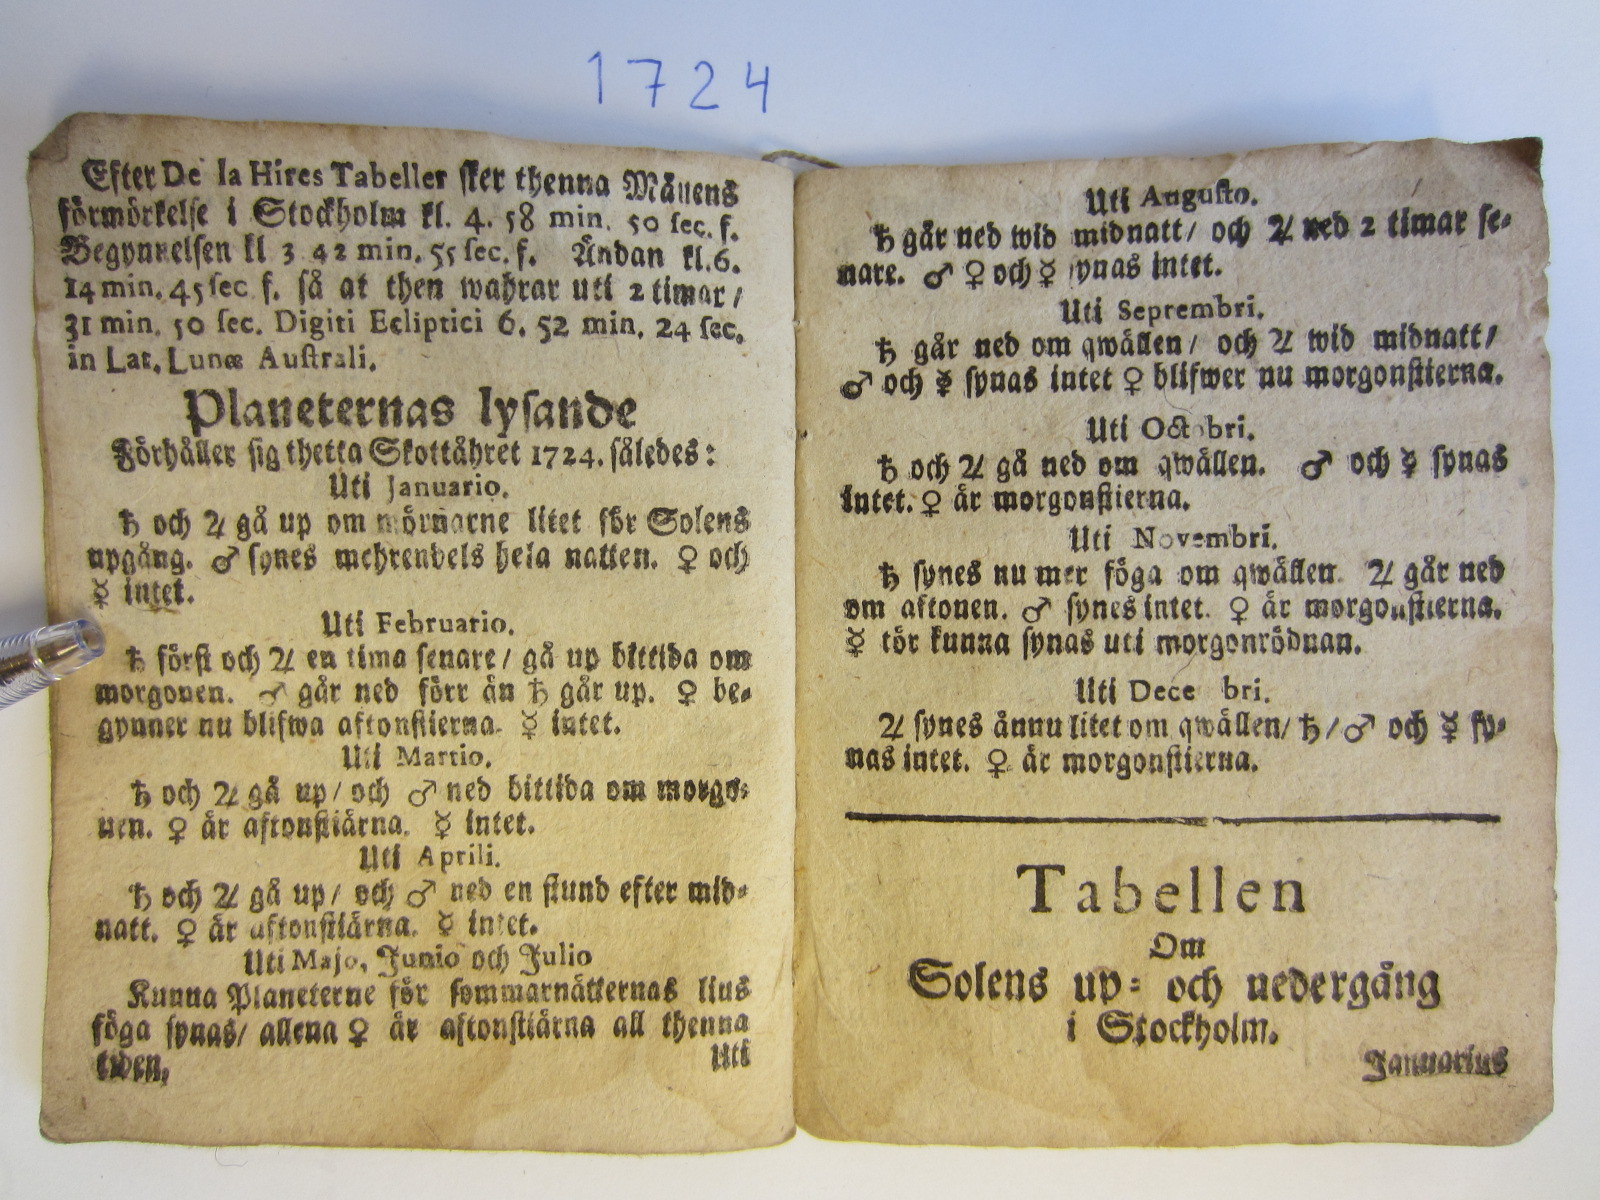 1724
Efter De la Hires Tabeller sker thenna Månens
förmörkelse i Stockholm kl. 4. 58 min. 50 sec. f.
Begynnelsen kl 3 42 min. 55 sec. f. Ändan kl. 6.
14 min. 45 sec f. så at then wahrar uti 2 timar /
31 min. 50 sec. Digiti Ecliptici 6. 52 min. 24 sec.
in Lat. Lunæ Australi.
Planeternas lysande
Förhåller sig thetta Skottåhret 1724. således:
Uti Januario.
♄ och ♃ gå up om mörnarne litet för Solens
upgång. ♂ synes mehrendels hela natten. ♀ och
☿ intet.
Uti Februario.
♄ först och ♃ en tima senare / gå up bittida om
morgonen. ♂ går ned förr än ♄ går up. ♀ be-
gynner nu blifwa aftonstierna. ☿ intet.
Uti Martio.
♄ och ♃ gå up / och ♂ ned bittida om morgo-
nen. ♀ är aftonstiärna. ☿ intet.
Uti Aprili.
♄ och ♃ gå up / och ♂ ned en stund efter mid-
natt. ♀ är aftonstiärna. ☿ intet.
Uti Majo, Junio och Julio
Kunna Planeterne för sommarnätternas lius
föga synas / allena ♀ är aftonstiärna all thenna
tiden,
Uti
Uti Augusto.
♄ går ned wid midnatt / och ♃ ned 2 timar se-
nare. ♂ ♀ och ☿ synas intet.
Uti Seprembri.
♄ går ned om qwällen / och ♃ wid midnatt /
♂ och ☿ synas intet ♀ blifwer nu morgonstierna.
Uti Octobri.
♄ och ♃ gå ned om qwällen. ♂ och ☿ synas
intet. ♀ är morgonstierna.
Uti Novembri.
♄ synes nu mer föga om qwällen. ♃ går ned
om aftonen. ♂ synes intet. ♀ är morgonstierna.
☿ tör kunna synas uti morgonrödnan.
Uti Dece bri.
♃ synes ännu litet om qwällen / ♄ / ♂ och ☿ sy-
nas intet. ♀ är morgonstierna.
Tabellen
Om
Solens up- och nedergång
i Stockholm.
Januarius